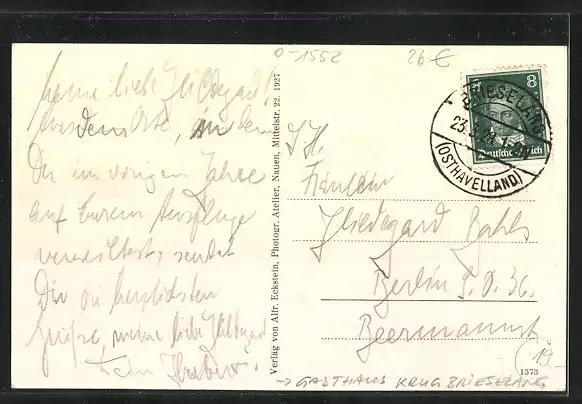 0-1552
26 €
8
Deutsches Reich
BRIESELANG
(OSTHAVELLAND)
Meine liebe Hildegard!
dem Orte, an dem
Du im vorigen Jahre
auf Eurem Ausfluge
sendet
Dir die herzlichsten
Grüße, meine liebe Hildegard
Dein
Verlag von Alfr. Eckstein, Photogr. Atelier, Nauen, Mittelstr. 22. 1927
Fräulein
Hildegard Bahls
Berlin S.O. 36.
Beermannstr.
19.-
1373
→ GASTHAUS KRUG BRIESELANG